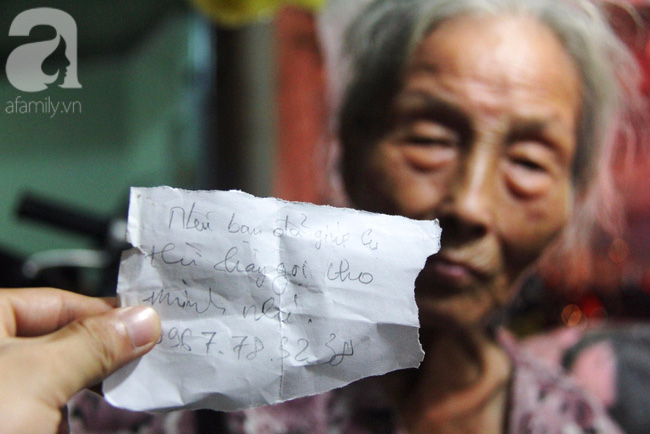 a
afamily.vn
Nếu bạn đã giúp cụ
thì hãy gọi cho
mình nhé!
0967.78.32.38